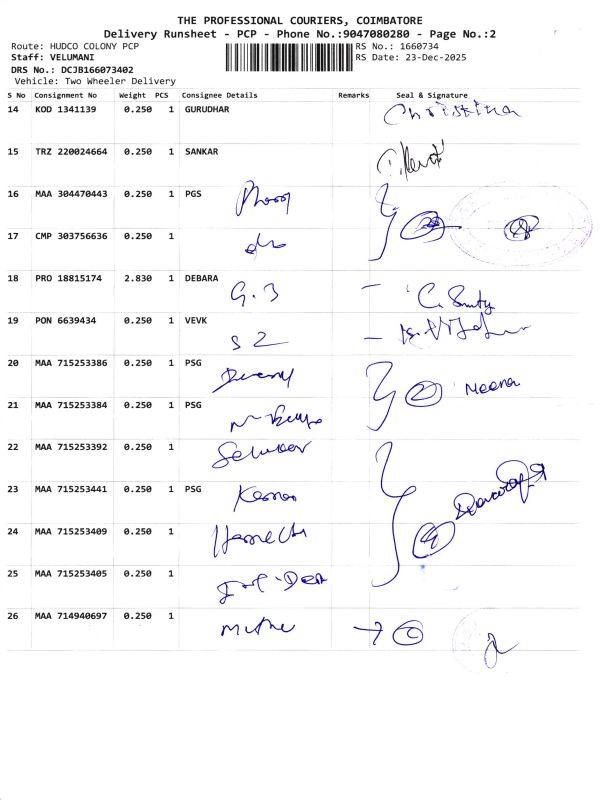 THE PROFESSIONAL COURIERS, COIMBATORE
Delivery Runsheet - PCP - Phone No.:9047080280 - Page No.:2
Route: HUDCO COLONY PCP RS No.: 1660734
Staff: VELUMANI RS Date: 23-Dec-2025
DRS No.: DCJB166073402
Vehicle: Two Wheeler Delivery
S No Consignment No Weight PCS Consignee Details Remarks Seal & Signature
14 KOD 1341139 0.250 1 GURUDHAR Christina
15 TRZ 220024664 0.250 1 SANKAR
16 MAA 304470443 0.250 1 PGS
17 CMP 303756636 0.250 1
18 PRO 18815174 2.830 1 DEBARA
G.3
19 PON 6639434 0.250 1 VEVK
S 2
20 MAA 715253386 0.250 1 PSG
2 Meena
21 MAA 715253384 0.250 1 PSG
22 MAA 715253392 0.250 1
23 MAA 715253441 0.250 1 PSG
24 MAA 715253409 0.250 1
4
25 MAA 715253405 0.250 1
26 MAA 714940697 0.250 1